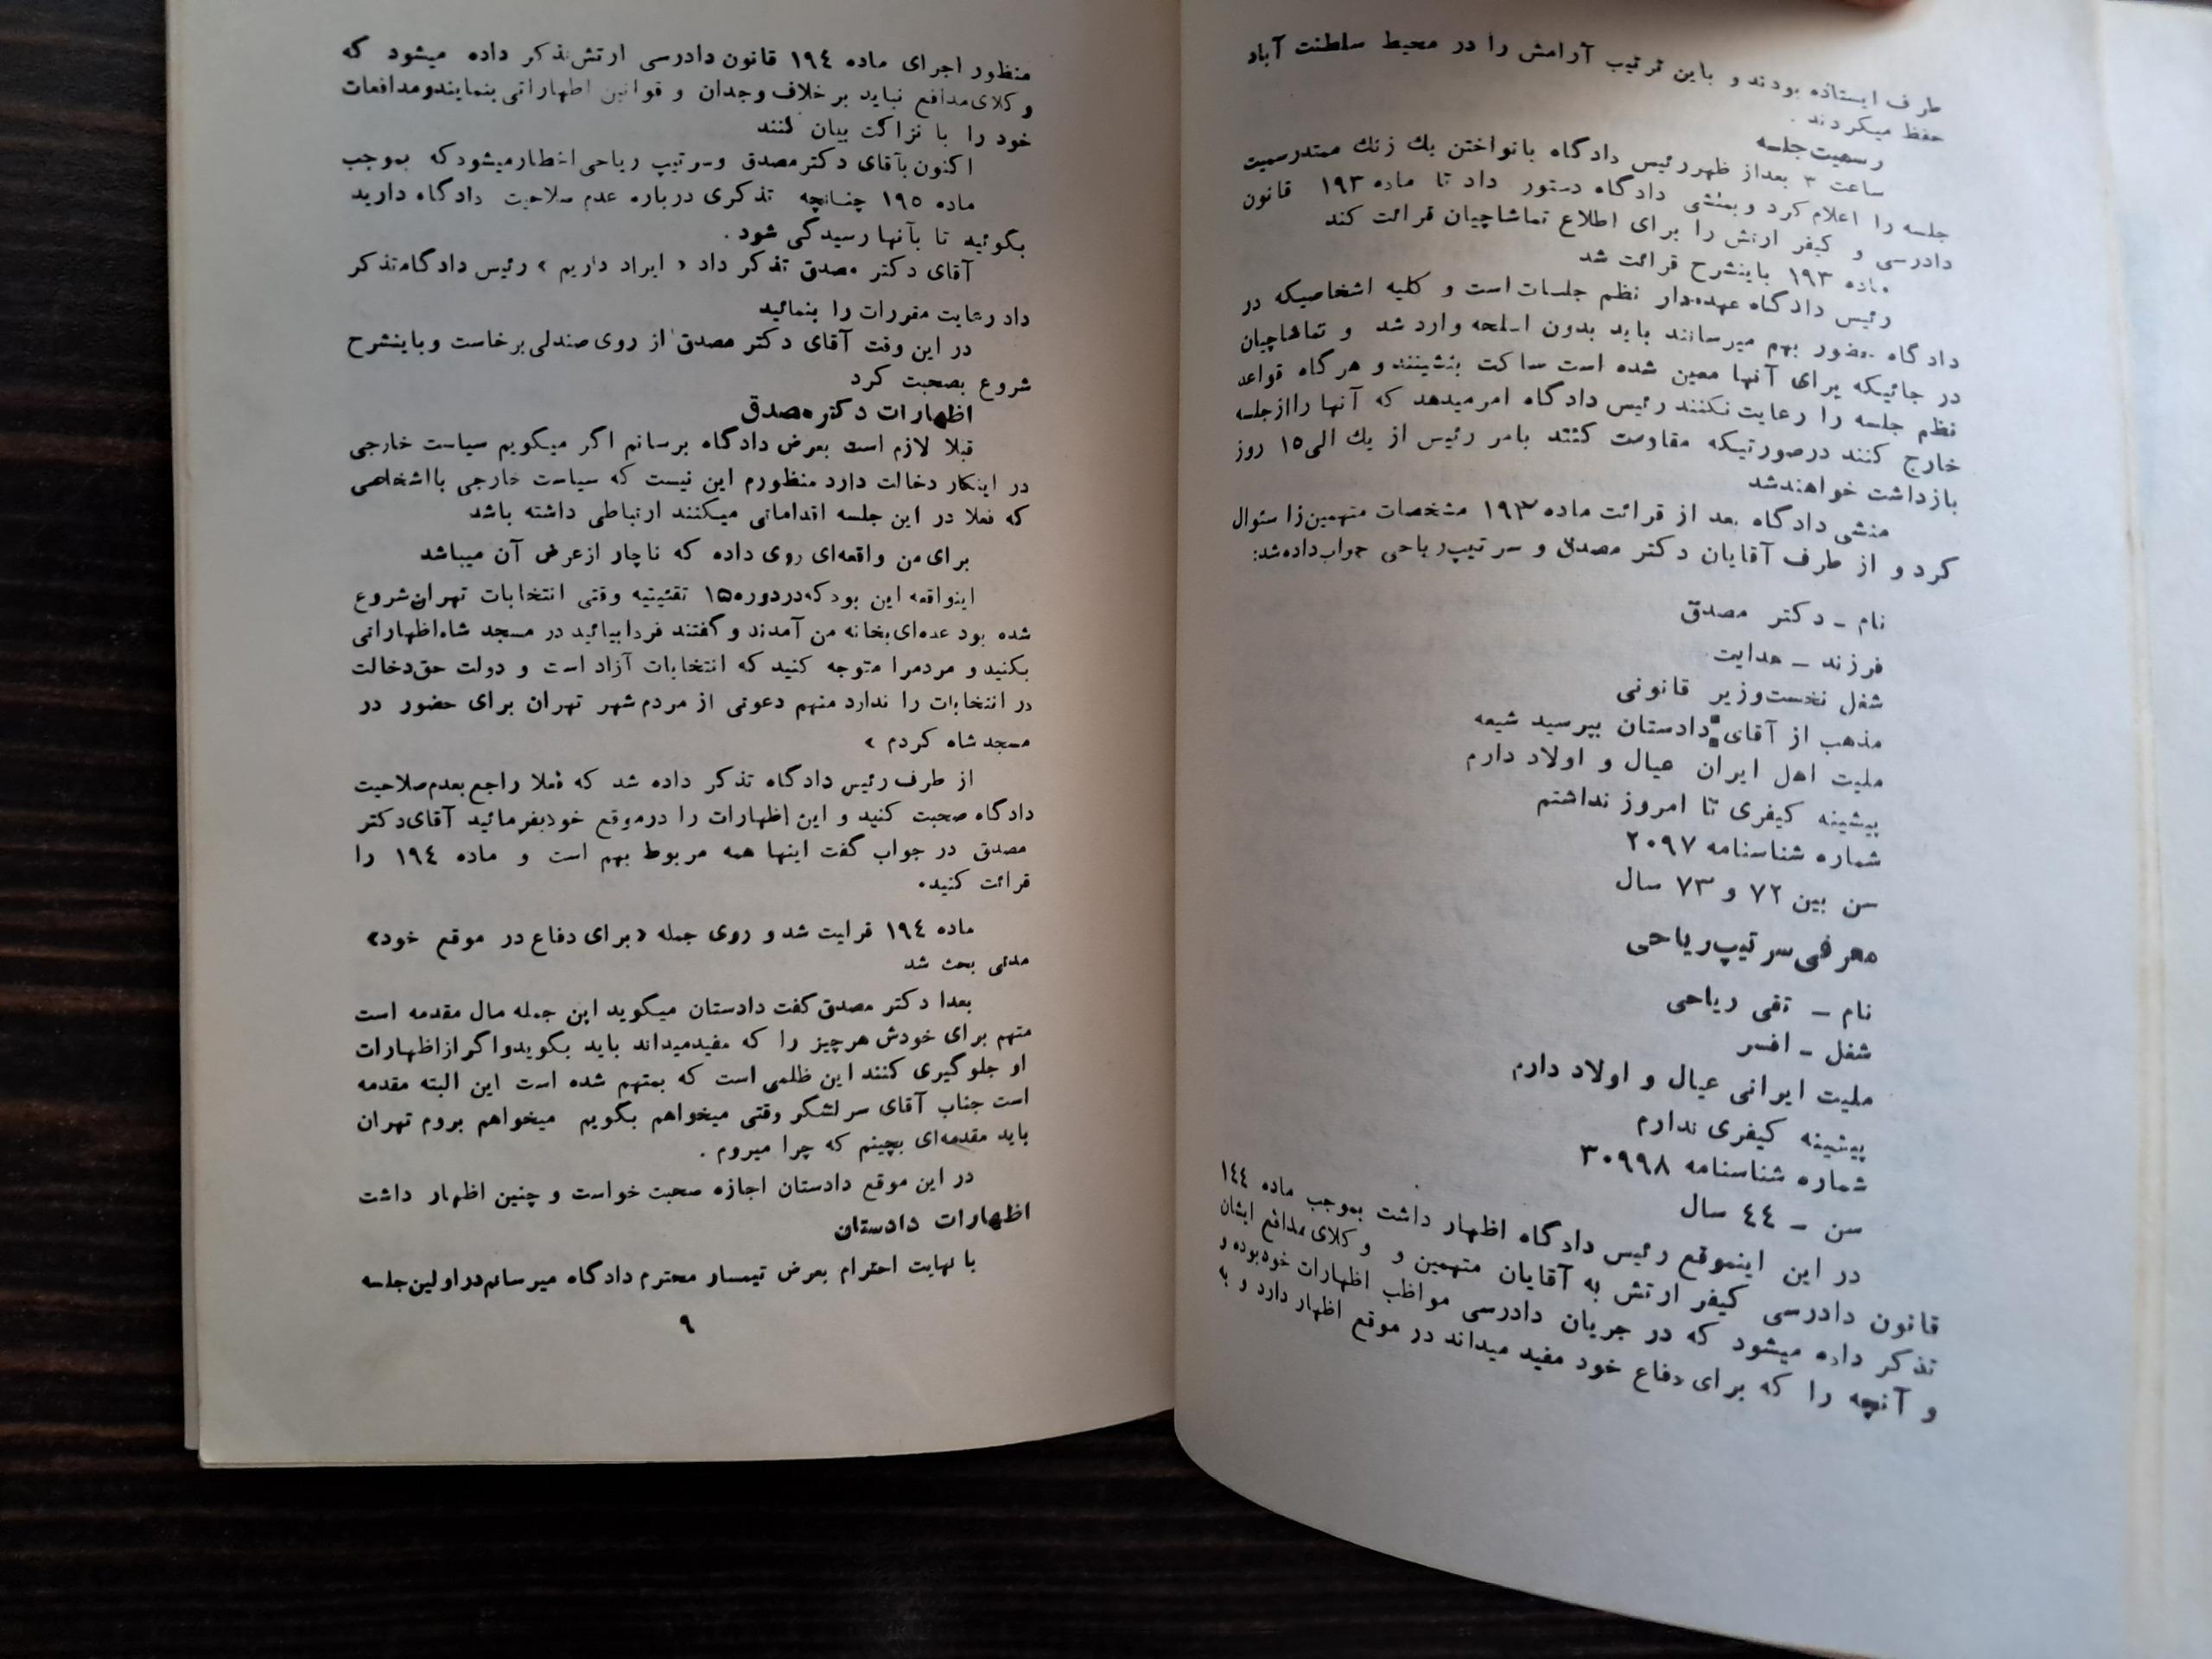 طرف ایستاده بودند و باین ترتیب آرامش را در محیط سلطنت آباد
حفظ میکردند .
رسمیت جلسه
ساعت ۳ بعداز ظهر رئیس دادگاه بانواختن یك زنك ممتد رسمیت
جلسه را اعلام کرد و بمنشی دادگاه دستور داد تا ماده ۱۹۳ قانون
دادرسی و کیفر ارتش را برای اطلاع تماشاچیان قرائت کند
ماده ۱۹۳ باینشرح قرائت شد
رئیس دادگاه عهده‌دار نظم جلسات است و کلیه اشخاصیکه در
دادگاه حضور بهم میرسانند باید بدون اسلحه وارد شد و تماشاچیان
در جائیکه برای آنها معین شده است ساکت بنشینند و هرگاه قواعد
نظم جلسه را رعایت نکنند رئیس دادگاه امر میدهد که آنها را از جلسه
خارج کنند درصورتیکه مقاومت کنند بامر رئیس از یك الی ۱۵ روز
بازداشت خواهند شد
منشی دادگاه بعد از قرائت ماده ۱۹۳ مشخصات متهمین را سئوال
کرد و از طرف آقایان دکتر مصدق و سرتیپ ریاحی جواب داده شد:
نام ـ دکتر مصدق
فرزند ـ هدایت
شغل نخست‌وزیر قانونی
مذهب از آقای دادستان بپرسید شیعه
ملیت اهل ایران عیال و اولاد دارم
پیشینه کیفری تا امروز نداشتم
شماره شناسنامه ۲۰۹۷
سن بین ۷۲ و ۷۳ سال
معرفی سرتیپ ریاحی
نام ـ تقی ریاحی
شغل ـ افسر
ملیت ایرانی عیال و اولاد دارم
پیشینه کیفری ندارم
شماره شناسنامه ۳۰۹۹۸
سن ـ ٤٤ سال
در این اینموقع رئیس دادگاه اظهار داشت بموجب ماده ١٤٤
قانون دادرسی کیفر ارتش به آقایان متهمین و وکلای مدافع ایشان
تذکر داده میشود که در جریان دادرسی مواظب اظهارات خود بوده و
و آنچه را که برای دفاع خود مفید میداند در موقع اظهار دارد و به
منظور اجرای ماده ١٩٤ قانون دادرسی ارتش تذکر داده میشود که
وکلای مدافع نباید بر خلاف وجدان و قوانین اظهاراتی بنمایند و مدافعات
خود را با نزاکت بیان کنند
اکنون بآقای دکتر مصدق وسرتیپ ریاحی اخطار میشود که بموجب
ماده ١٩٥ چنانچه تذکری درباره عدم صلاحیت دادگاه دارید
بگوئید تا بآنها رسیدگی شود .
آقای دکتر مصدق تذکر داد « ایراد داریم » رئیس دادگاه تذکر
داد رعایت مقررات را بنمائید
در این وقت آقای دکتر مصدق از روی صندلی برخاست و باینشرح
شروع بصحبت کرد
اظهارات دکتر مصدق
قبلا لازم است بعرض دادگاه برسانم اگر میگویم سیاست خارجی
در اینکار دخالت دارد منظورم این نیست که سیاست خارجی بااشخاصی
که فعلا در این جلسه اقداماتی میکنند ارتباطی داشته باشد
برای من واقعه‌ای روی داده که ناچار از عرض آن میباشد
اینواقعه این بود که در دوره ۱۵ تقنینیه وقتی انتخابات تهران شروع
شده بود عده‌ای بخانه من آمدند و گفتند فردا بیائید در مسجد شاه اظهاراتی
بکنید و مردم را متوجه کنید که انتخابات آزاد است و دولت حق دخالت
در انتخابات را ندارد منهم دعوتی از مردم شهر تهران برای حضور در
مسجد شاه کردم »
از طرف رئیس دادگاه تذکر داده شد که فعلا راجع بعدم صلاحیت
دادگاه صحبت کنید و این اظهارات را در موقع خود بفرمائید آقای دکتر
مصدق در جواب گفت اینها همه مربوط بهم است و ماده ١٩٤ را
قرائت کنید.
ماده ١٩٤ قرایت شد و روی جمله «برای دفاع در موقع خود»
مدتی بحث شد
بعدا دکتر مصدق گفت دادستان میگوید این جمله مال مقدمه است
متهم برای خودش هرچیز را که مفید میداند باید بگوید و اگر از اظهارات
او جلوگیری کنند این ظلمی است که بمتهم شده است این البته مقدمه
است جناب آقای سرلشگر وقتی میخواهم بگویم میخواهم بروم تهران
باید مقدمه‌ای بچینم که چرا میروم .
در این موقع دادستان اجازه صحبت خواست و چنین اظهار داشت
اظهارات دادستان
با نهایت احترام بعرض تیمسار محترم دادگاه میرسانم در اولین جلسه
۹